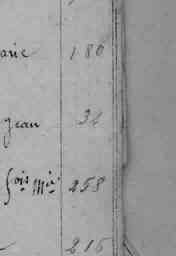 arie 180
Jean 31
fois Mie 258
215